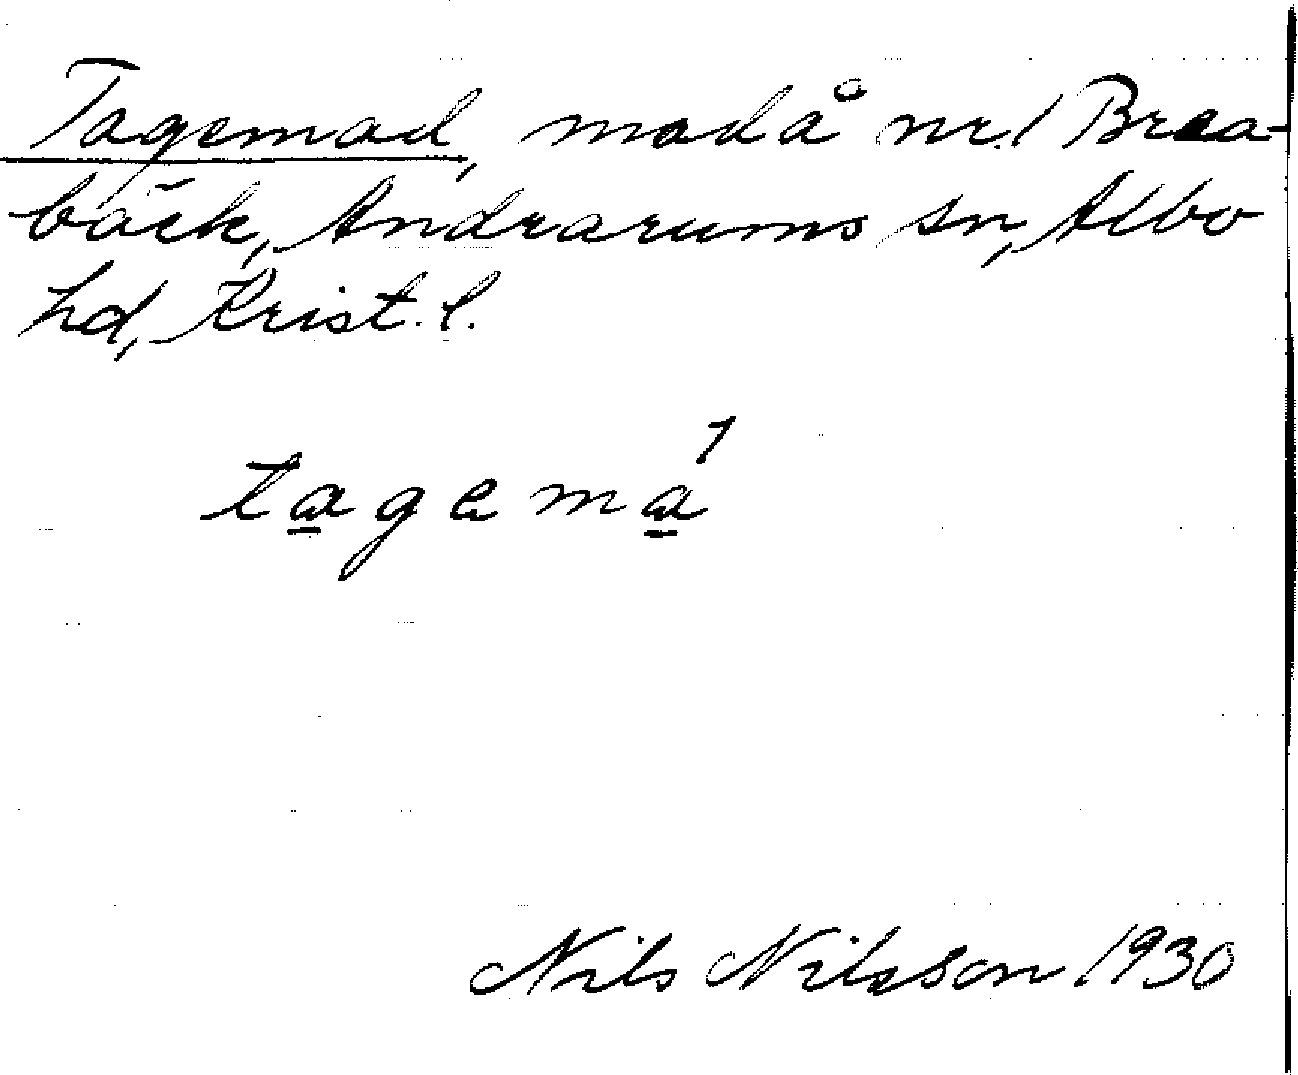 Tagemad, mad å nr 1 Brea-
bäck, Andrarums sn, Albo
hd, Krist. l.
tagema1
Nils Nilsson 1930